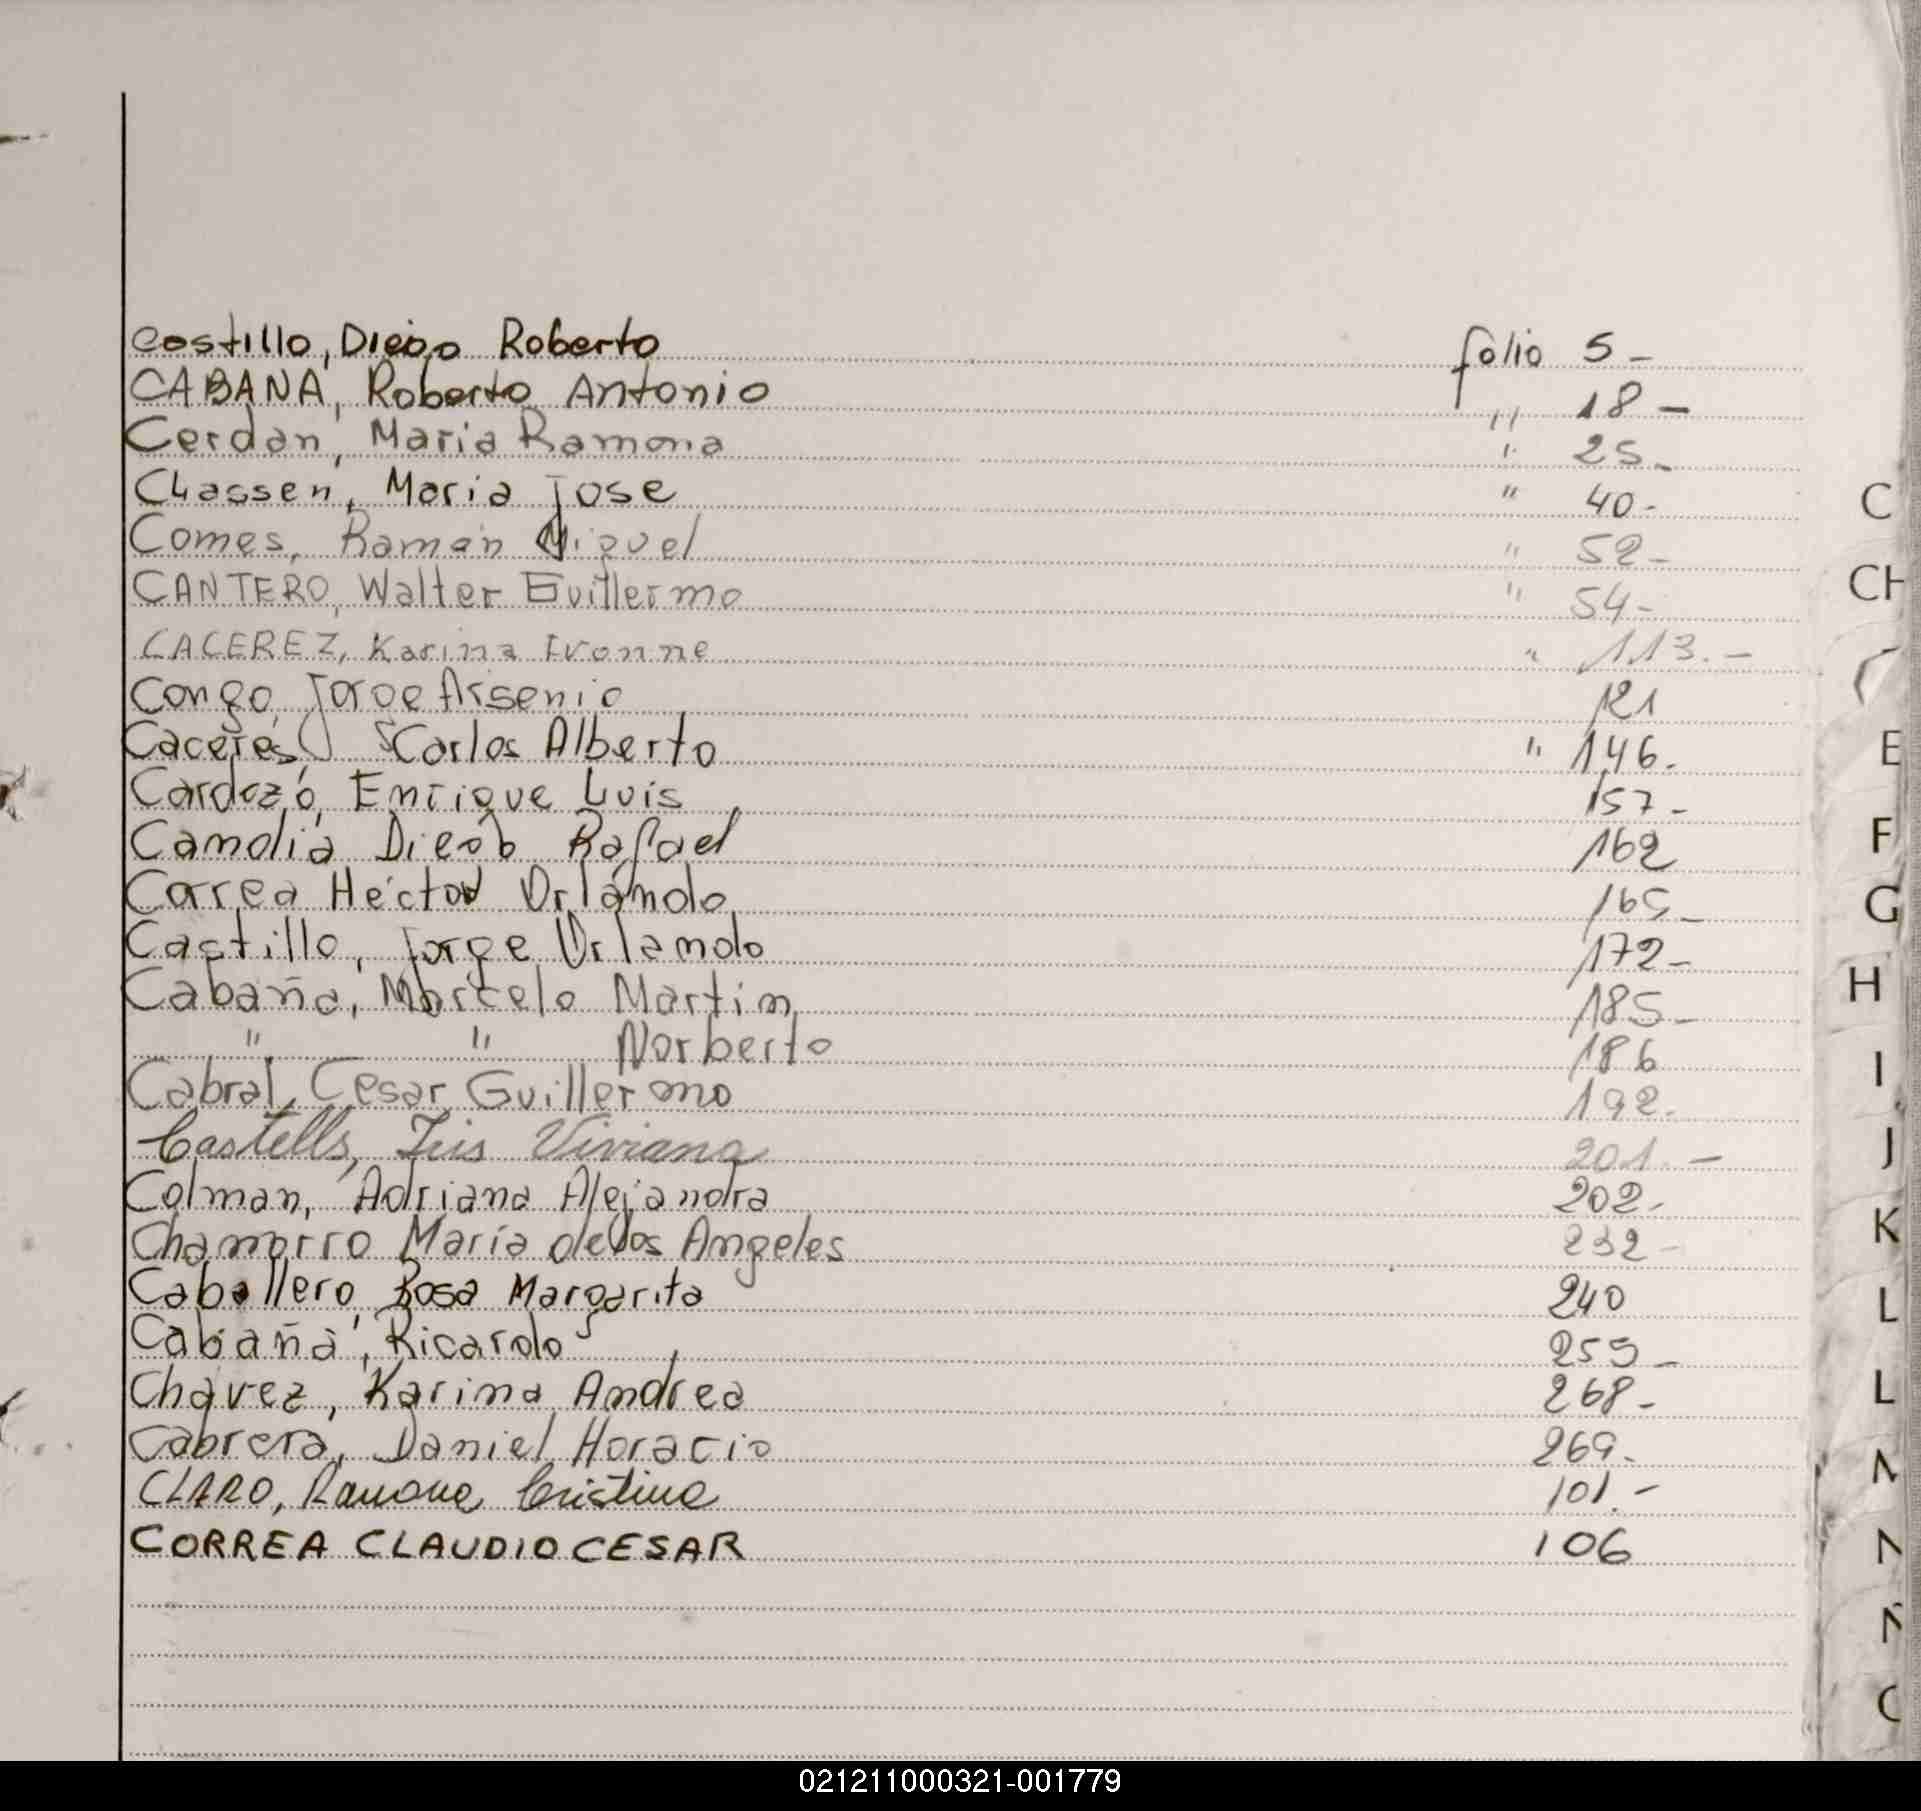 Castillo, Diego Roberto folio 5-
CABANA, Roberto Antonio " 18-
Cerdan, Maria Ramona " 25-
Classen, Maria Jose " 40-
Comes, Ramón Miguel " 52-
CANTERO, Walter Guillermo " 54-
CACEREZ, Karina Ivonne " 113.-
Congo, Jorge Arsenio 121
Caceres, Carlos Alberto " 146-
Cardozo, Enrique Luis 157-
Camolia Diego Rafael 162
Correa Héctor Orlando 165-
Castillo, Jorge Orlando 172-
Cabaña, Marcelo Martin 185-
" " Norberto 186
Cabral, Cesar Guillermo 192-
Castells, Iris Viviana 201.-
Colman, Adriana Alejandra 202-
Chamorro María de los Angeles 232-
Caballero, Rosa Margarita 240
Cabaña, Ricardo 259-
Chavez, Karina Andrea 268-
Cabrera, Daniel Horacio 269-
CLARO, Ramona Cristina 101.-
CORREA CLAUDIO CESAR 106
C
CH
E
F
G
H
I
J
K
L
L
M
N
Ñ
O
021211000321-001779